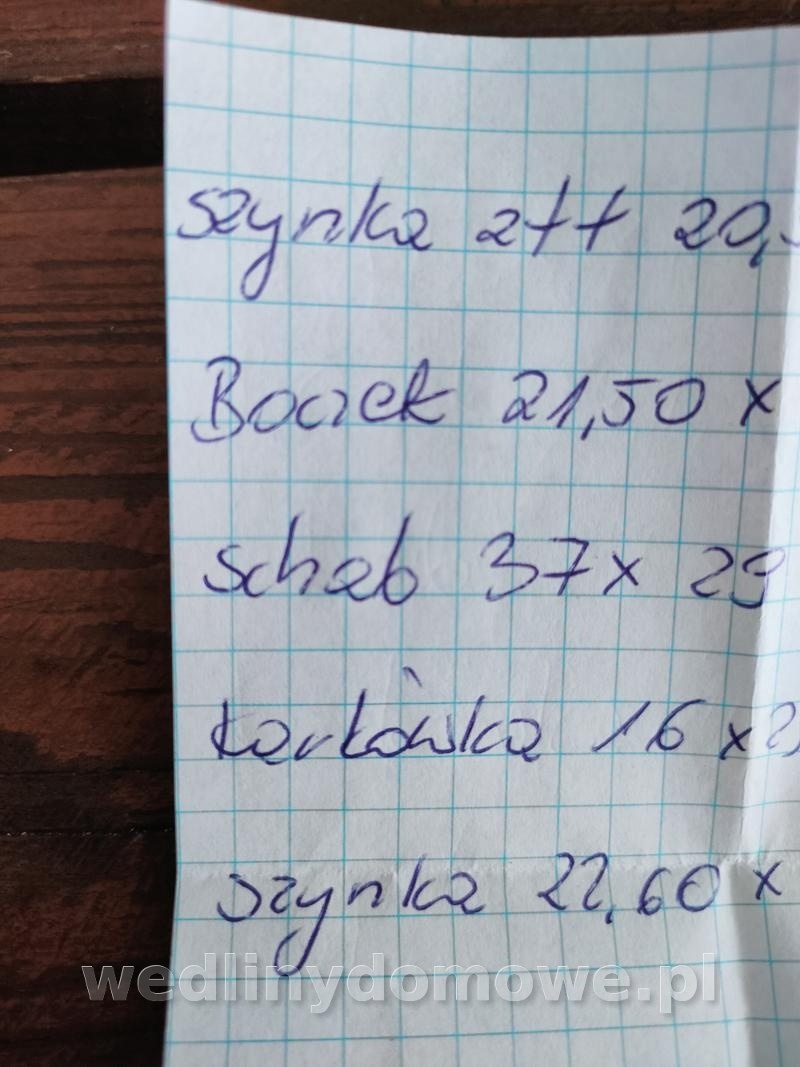 Szynka z tł 20,
Boczek 21,50 x
schab 37 x 29
karkówka 16 x
Szynka 22,60 x
wedlinydomowe.pl